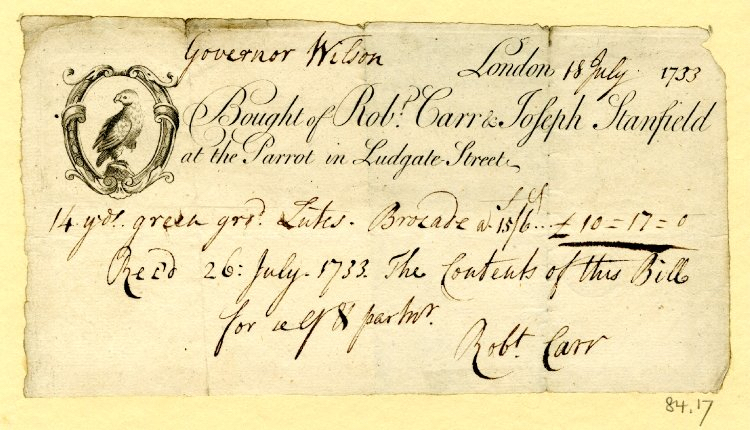 Governor Wilson
London 18 July 1733
Bought of Robt. Carr & Joseph Stanfield
at the Parrot in Ludgate Street
s d
14 yds. green grd. Lutes. Brocade a 15/6 .. £ 10 = 17 = 0
Rec'd 26: July. 1733. The Contents of this Bill
for self & partnr.
Robt. Carr
84.17